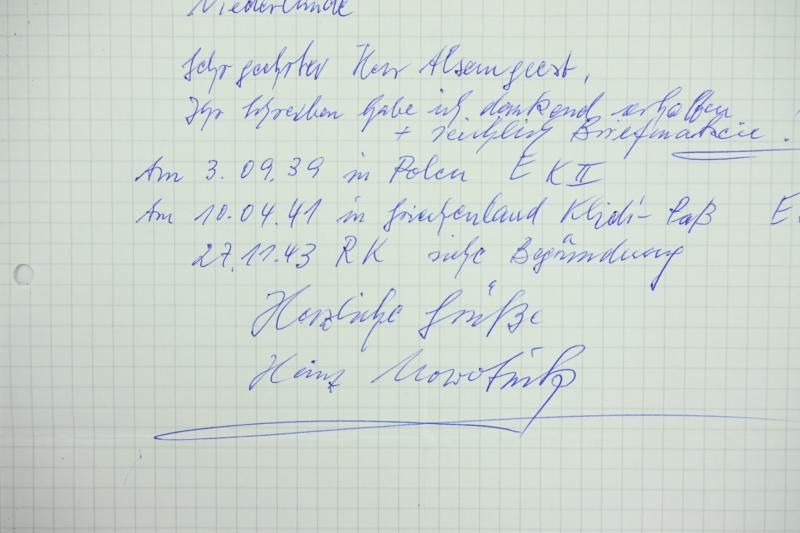 Niederlande
Sehr geehrter Herr Alsemgeest,
Ihr Schreiben habe ich dankend erhalten
+ reichlich Briefmarken.
Am 3.09.39 in Polen E K II
Am 10.04.41 in Griechenland Klidi-Paß E
27.11.43 RK siehe Begründung
Herzliche Grüße
Heinz Nowotnik